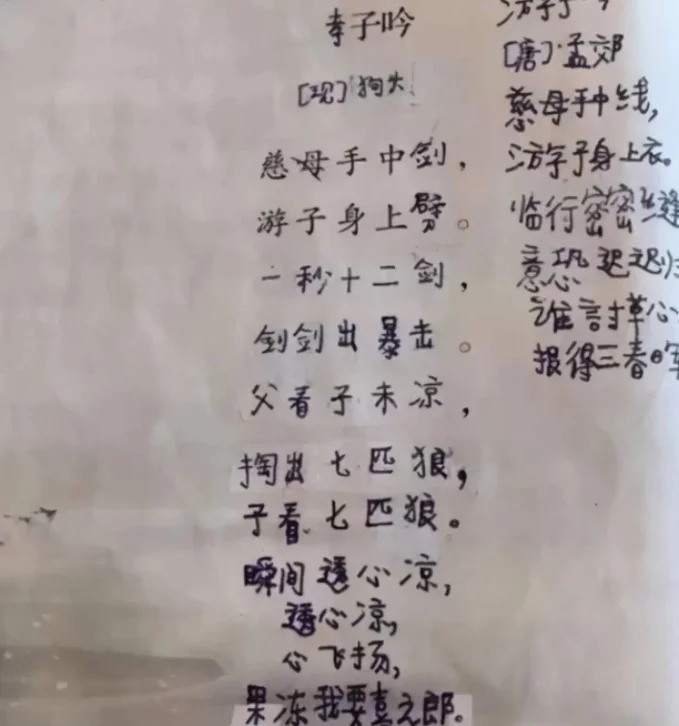 孝子吟
[现]狗头
慈母手中剑，
游子身上劈。
一秒十二剑，
剑剑出暴击。
父看子未凉，
掏出七匹狼，
子看七匹狼。
瞬间透心凉，
透心凉，
心飞扬，
果冻我要喜之郎。
游子吟
[唐]孟郊
慈母手中线，
游子身上衣。
临行密密缝
意恐迟迟归
谁讨草心
报得三春晖